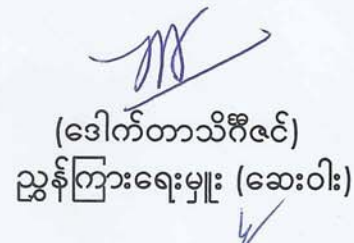 (ဒေါက်တာသိင်္ဂီဇင်)
ညွှန်ကြားရေးမှူး (ဆေးဝါး)